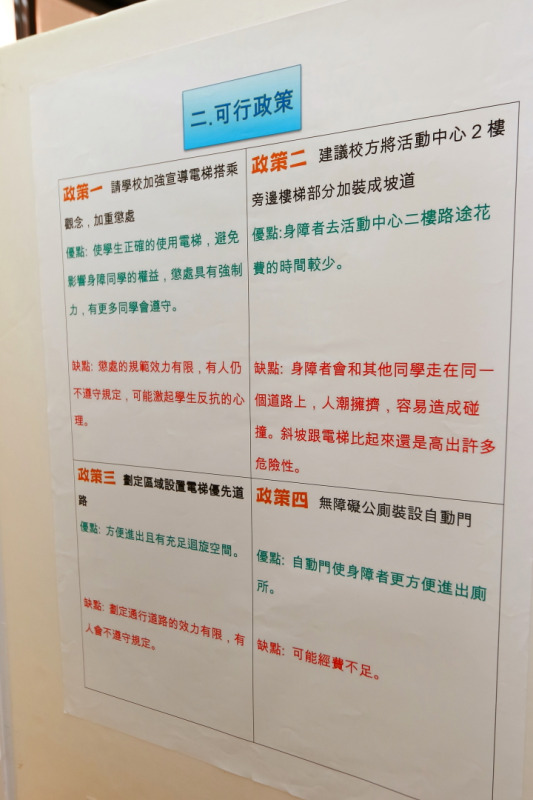 二.可行政策
政策一 請學校加強宣導電梯搭乘
觀念，加重懲處
優點: 使學生正確的使用電梯，避免
影響身障同學的權益，懲處具有強制
力，有更多同學會遵守。
缺點: 懲處的規範效力有限，有人仍
不遵守規定，可能激起學生反抗的心
理。
政策二 建議校方將活動中心 2 樓
旁邊樓梯部分加裝成坡道
優點:身障者去活動中心二樓路途花
費的時間較少。
缺點: 身障者會和其他同學走在同一
個道路上，人潮擁擠，容易造成碰
撞。斜坡跟電梯比起來還是高出許多
危險性。
政策三 劃定區域設置電梯優先道
路
優點: 方便進出且有充足迴旋空間。
缺點: 劃定通行道路的效力有限，有
人會不遵守規定。
政策四 無障礙公廁裝設自動門
優點: 自動門使身障者更方便進出廁
所。
缺點: 可能經費不足。